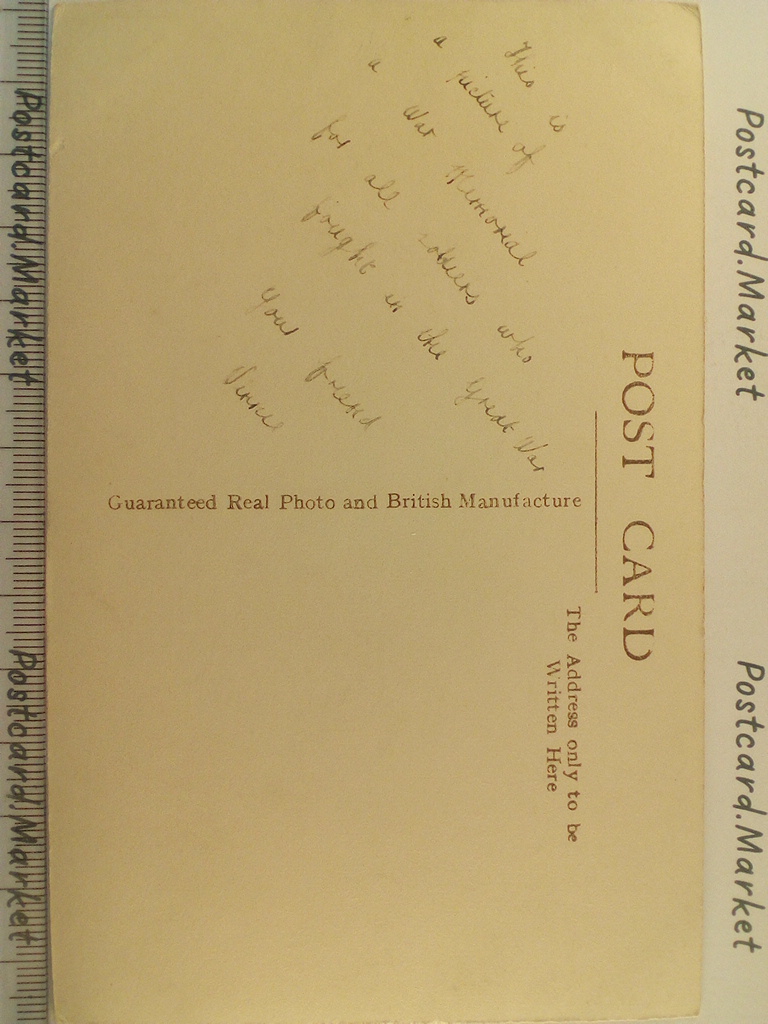 POST CARD
This is
a picture of
a War Memorial
for all soldiers who
fought in the Great War
Your friend
Guaranteed Real Photo and British Manufacture
The Address only to be
Written Here
Postcard.Market
Postcard.Market
Postcard.Market
Postcard.Market